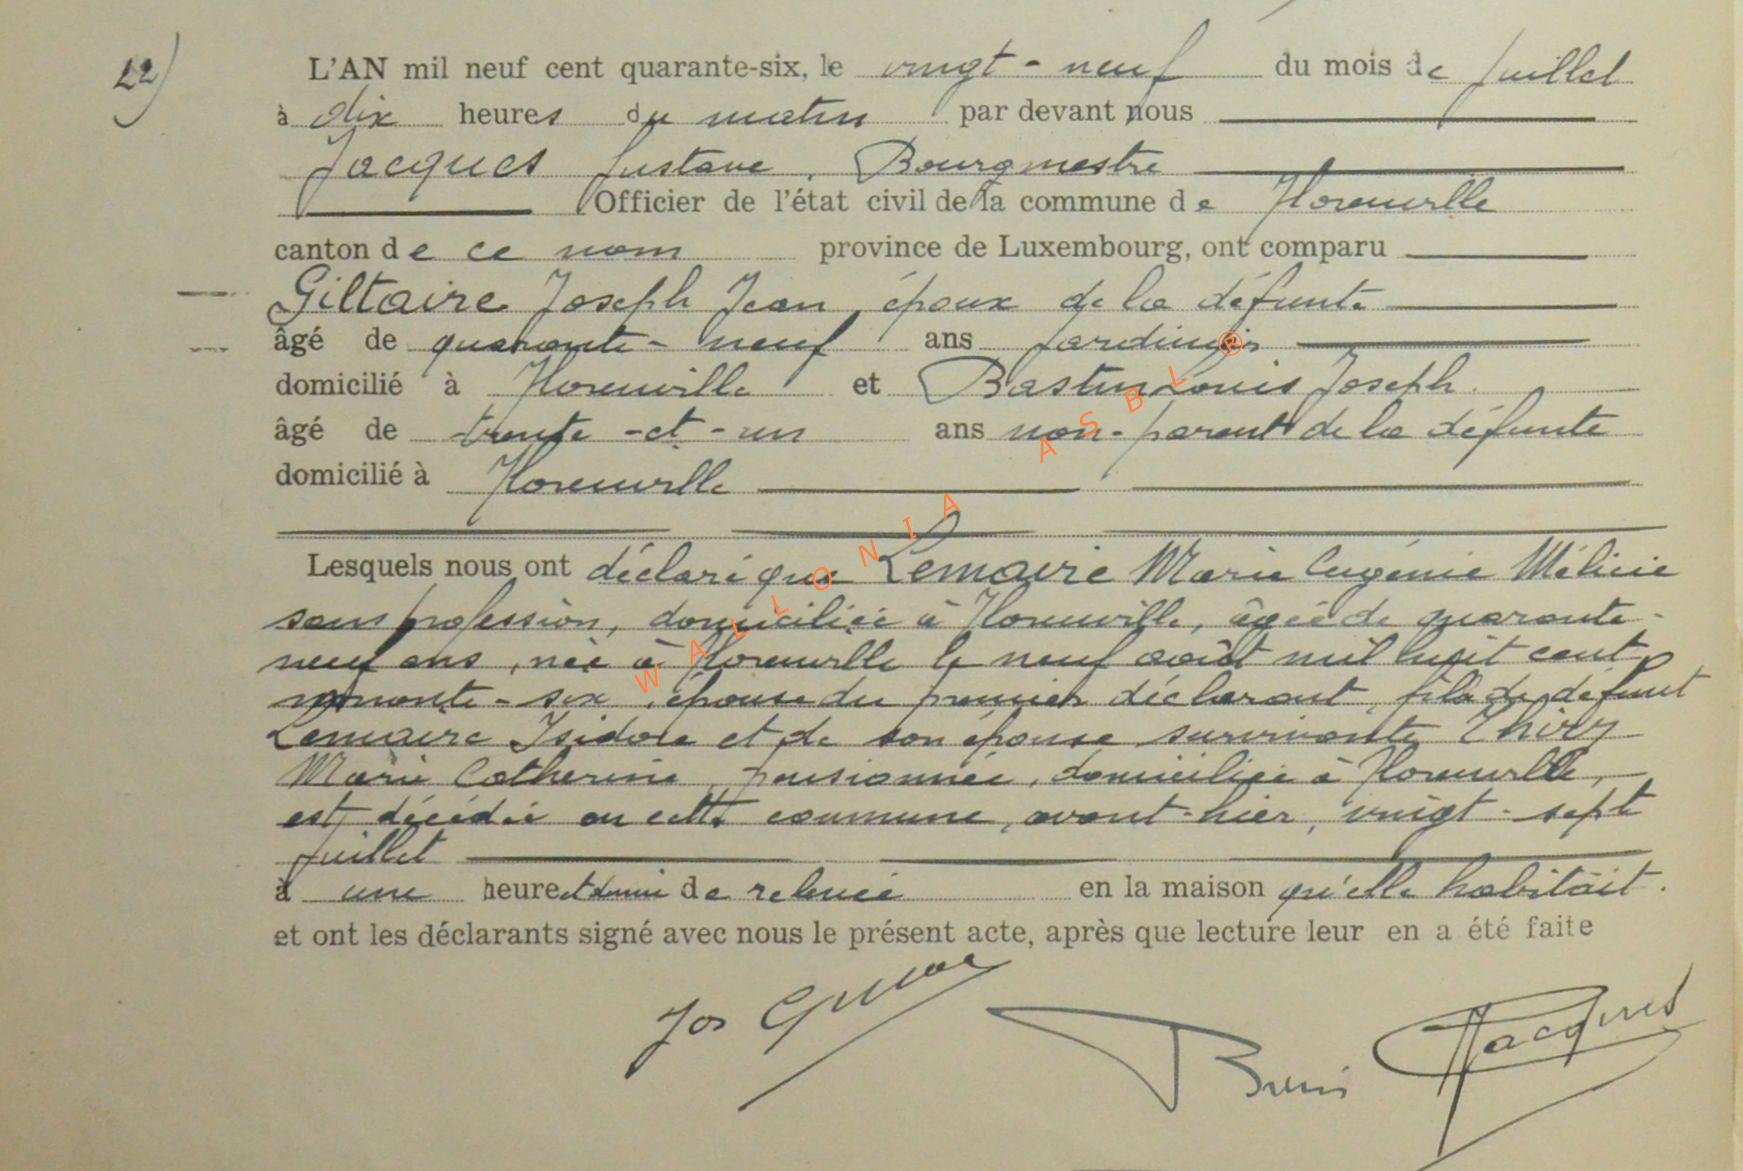 22)
L'AN mil neuf cent quarante-six, le vingt-neuf du mois de Juillet
à dix heures du matin par devant nous
Jacques Gustave, Bourgmestre
Officier de l'état civil de la commune de Florenville
canton de ce nom province de Luxembourg, ont comparu
Giltaire Joseph Jean, époux de la défunte
âgé de quarante-neuf ans Jardinier
domicilié à Florenville et Bastin Louis Joseph.
âgé de trente-et-un ans non-parent de la défunte
domicilié à Florenville
Lesquels nous ont déclaré que Lemaire Marie Eugénie Mélicie
sans profession, domiciliée à Florenville, âgée de quarante-
neuf ans, née à Florenville le neuf août mil huit cent
nonante-six, épouse du premier déclarant, fille de défunt
Lemaire Isidore et de son épouse survivante Thiry
Marie Catherine, pensionnée, domiciliée à Florenville,
est décédée en cette commune, avant-hier, vingt-sept
Juillet
à une heure et demi de relevée en la maison qu'elle habitait.
et ont les déclarants signé avec nous le présent acte, après que lecture leur en a été faite
Jos
Jacques
WALLONIA ASBL ®